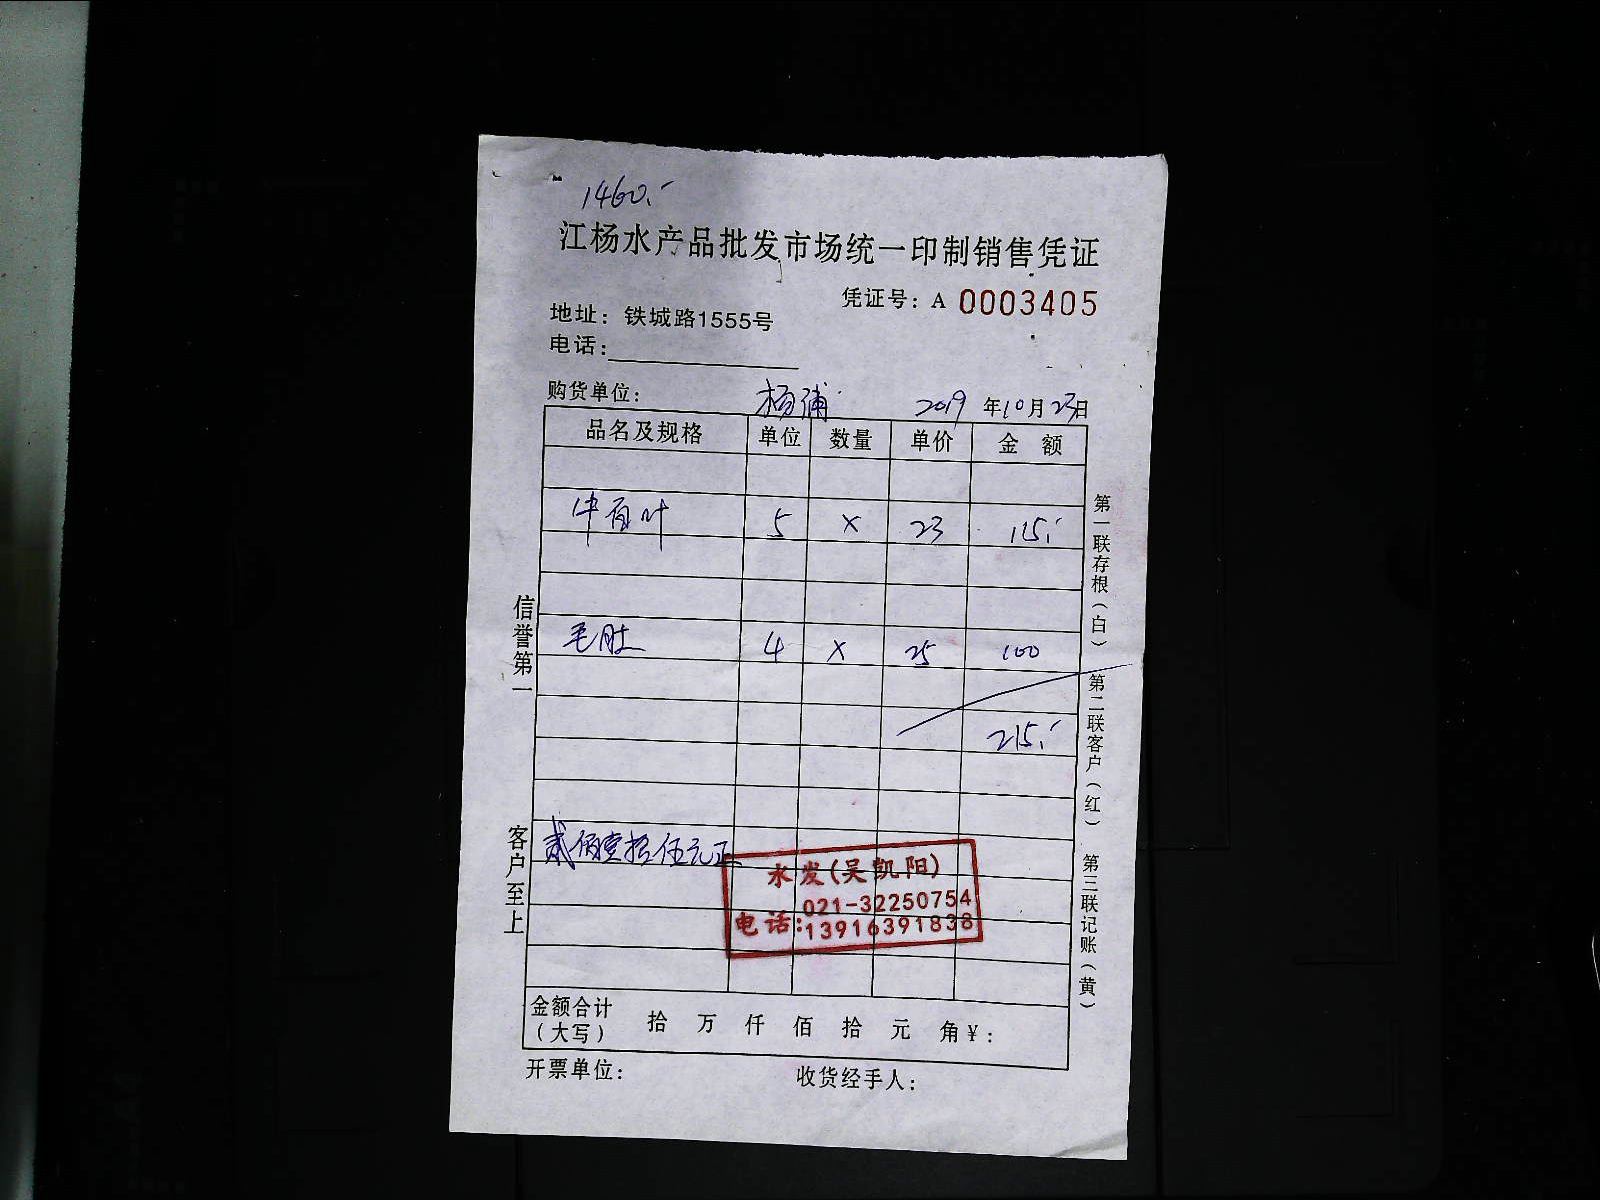 1460.-
江杨水产品批发市场统一印制销售凭证
凭证号：A 0003405
地址：铁城路1555号
电话：
购货单位： 杨浦 2019 年10月27日
品名及规格 单位 数量 单价 金 额
牛百叶 5 × 23 115.-
毛肚 4 × 25 100
215.-
贰佰壹拾伍元正
永发(吴凯阳)
021-32250754
电话:13916391838
金额合计
（大写） 拾 万 仟 佰 拾 元 角 ¥：
开票单位： 收货经手人：
信誉第一
客户至上
第一联存根（白）
第二联客户（红）
第三联记账（黄）